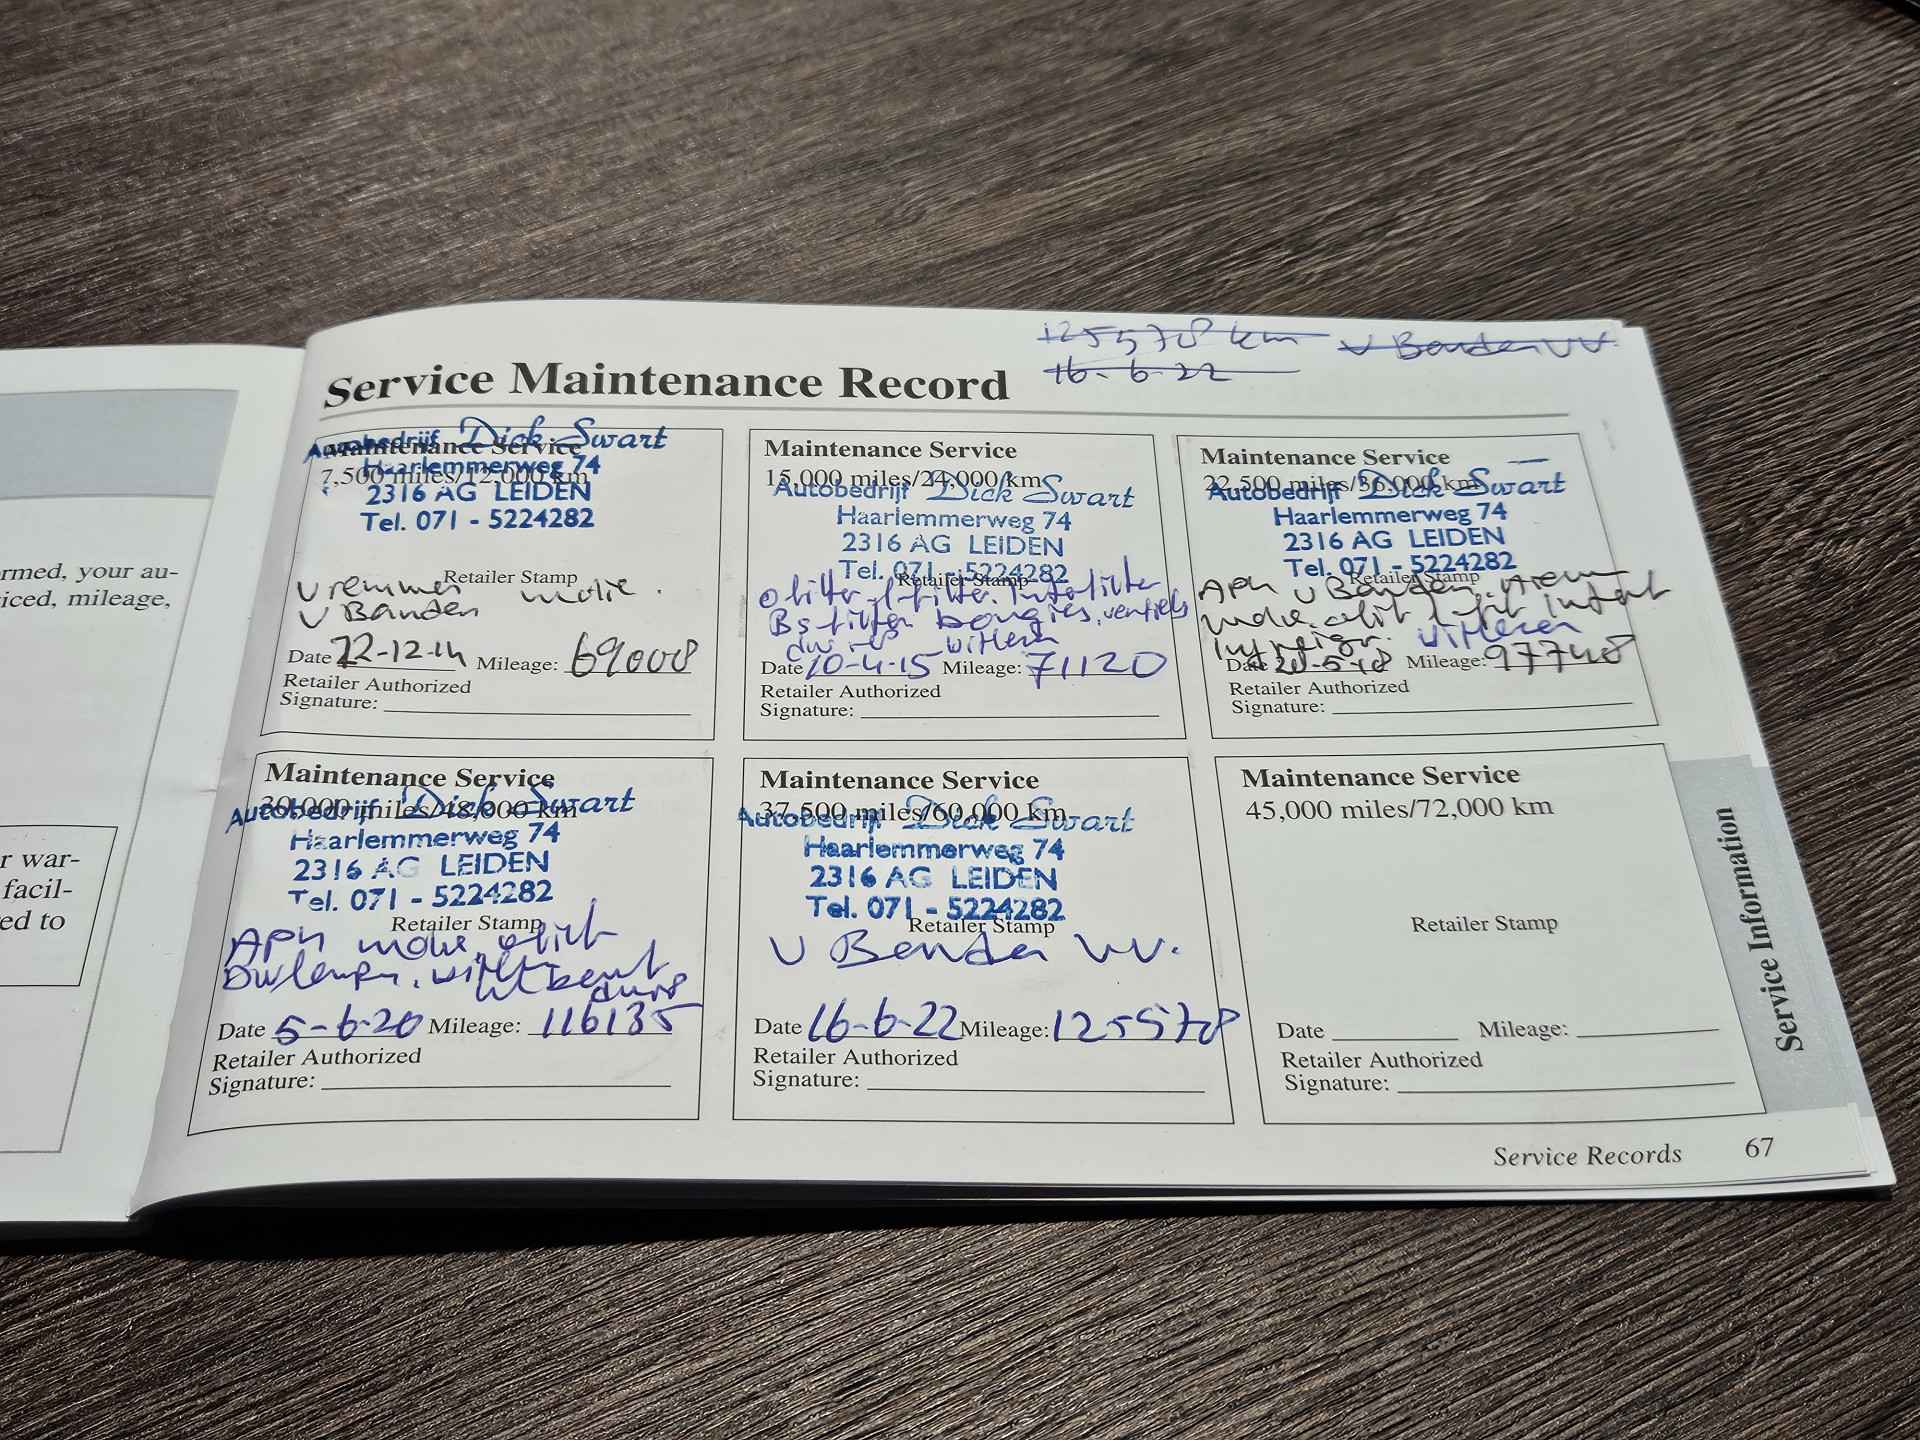 rmed, your au-
iced, mileage,
r war-
facil-
ed to
125578 km v Banden VV.
16-6-22
Service Maintenance Record
Maintenance Service
7,500 miles/12,000 km
Autobedrijf Dick Swart
Haarlemmerweg 74
2316 AG LEIDEN
Tel. 071 - 5224282
Retailer Stamp
v remmen
v Banden
Date 22-12-14 Mileage: 69008
Retailer Authorized
Signature:
Maintenance Service
15,000 miles/24,000 km
Autobedrijf Dick Swart
Haarlemmerweg 74
2316 AG LEIDEN
Tel. 071 - 5224282
Retailer Stamp
o filter l-filter. Int filter
bougies, ventiels
Date 10-4-15 Mileage: 71120
Retailer Authorized
Signature:
Maintenance Service
22,500 miles/36,000 km
Autobedrijf Dick Swart
Haarlemmerweg 74
2316 AG LEIDEN
Tel. 071 - 5224282
Retailer Stamp
APK v Banden.
Date Mileage: 97748
Retailer Authorized
Signature:
Maintenance Service
30,000 miles/48,000 km
Autobedrijf Dick Swart
Haarlemmerweg 74
2316 AG LEIDEN
Tel. 071 - 5224282
Retailer Stamp
APK
Date 5-6-20 Mileage: 116135
Retailer Authorized
Signature:
Maintenance Service
37,500 miles/60,000 km
Autobedrijf Dick Swart
Haarlemmerweg 74
2316 AG LEIDEN
Tel. 071 - 5224282
Retailer Stamp
v Banden VV.
Date 16-6-22 Mileage: 125578
Retailer Authorized
Signature:
Maintenance Service
45,000 miles/72,000 km
Retailer Stamp
Date Mileage:
Retailer Authorized
Signature:
Service Information
Service Records 67